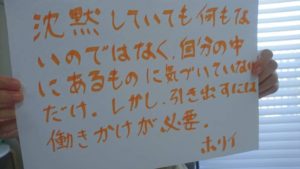 沈黙していても何もな
いのではなく、自分の中
にあるものに気づいていない
だけ。しかし、引き出すには
働きかけが必要。
ホリイ